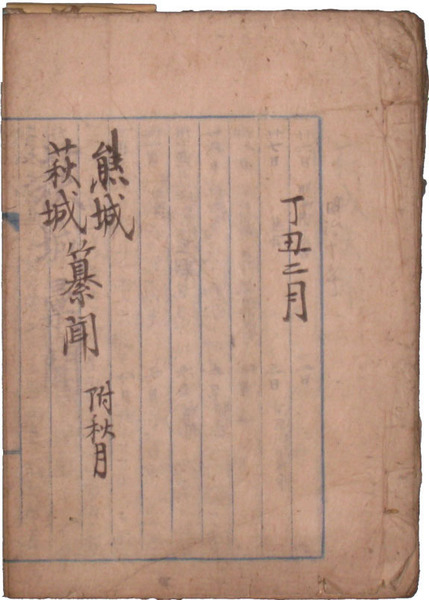 丁丑二月
熊城
萩城
纂聞
附秋月